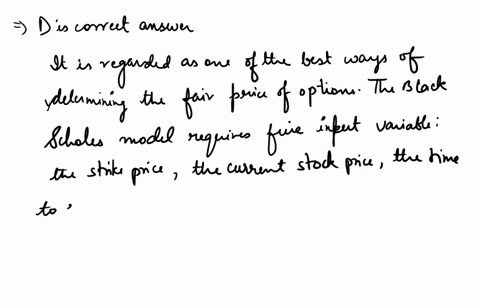 ⇒ D is correct answer
It is regarded as one of the best ways of
determining the fair price of options. The Black
Scholes model requires five input variable:
the strike price, the current stock price, the time
to,